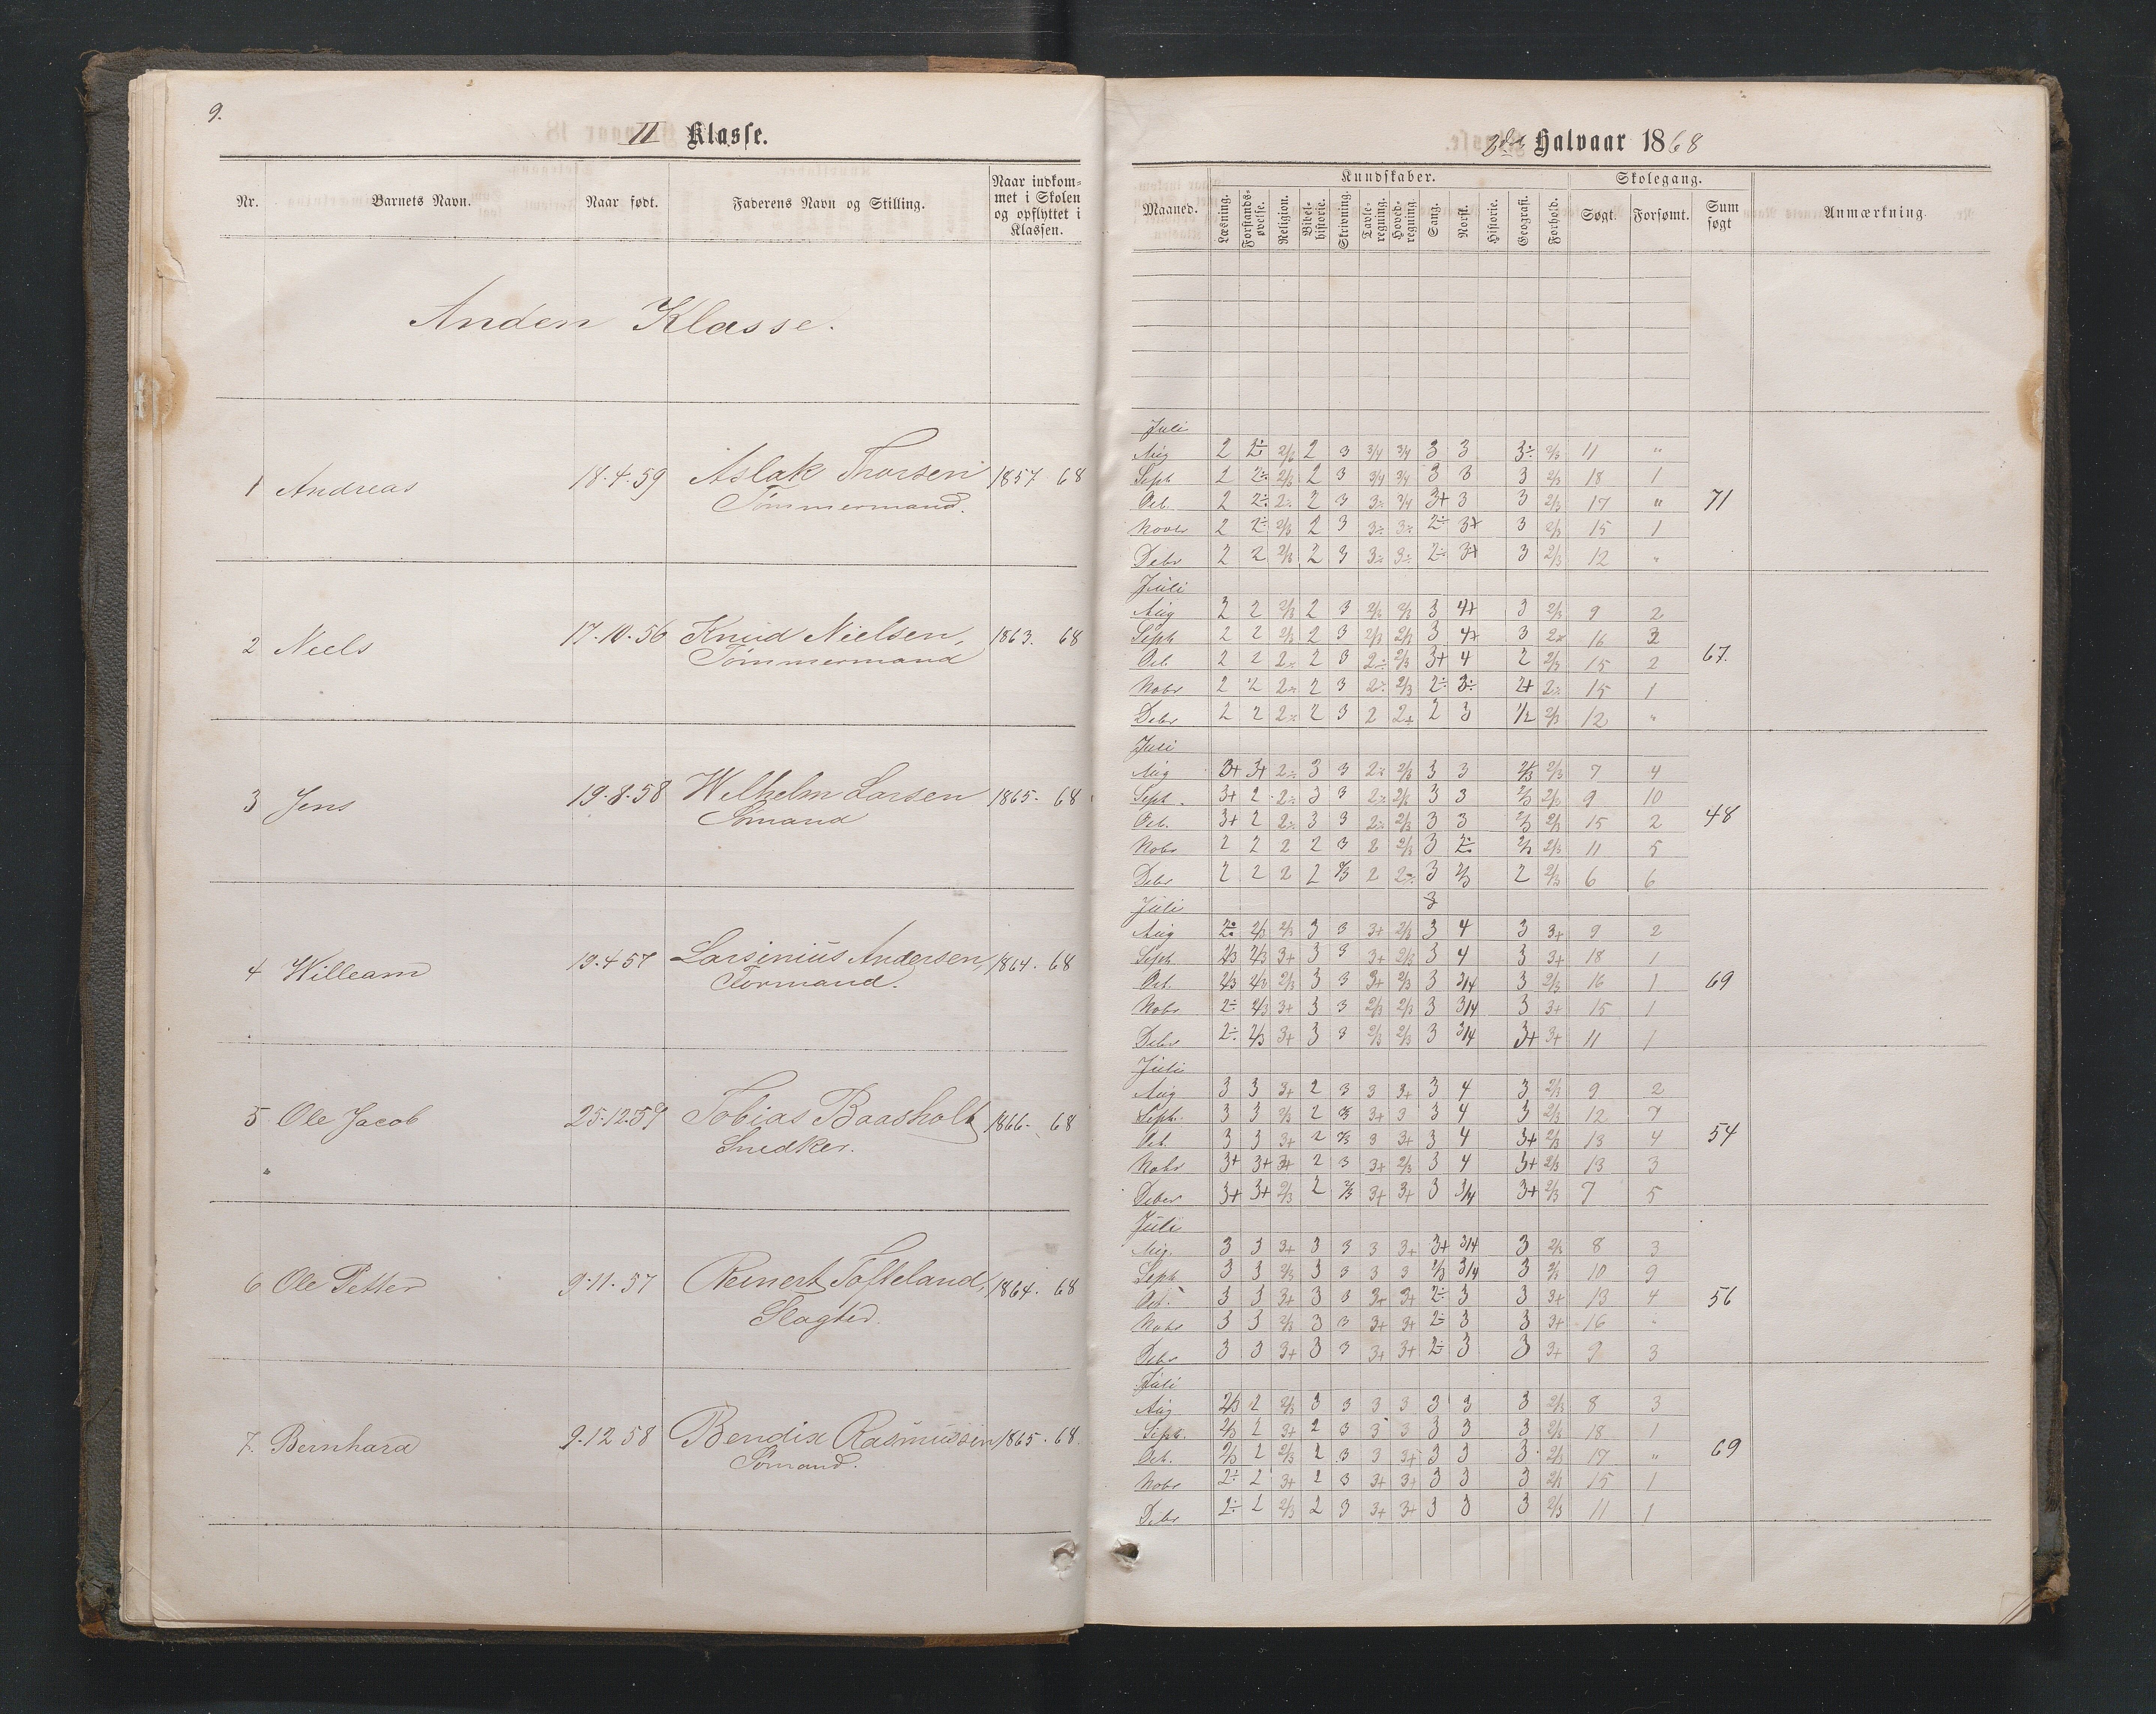 9.
II Klasse.
Nr. Barnets Navn. Naar født. Faderens Navn og Stilling. Naar indkom-
met i Skolen
og opflyttet i
Klassen.
Anden Klasse.
1 Andreas 18.4.59 Aslak Thorsen 1857 68
Tømmermand.
2 Niels 17.10.56 Knud Nielsen, 1863. 68
Tømmermand
3 Jens 19.8.58 Wilhelm Larsen 1865. 68
Sømand
4 Willeam 19.4 57 Larsinius Andersen, 1864. 68
Formand.
5 Ole Jacob 25.12.59 Tobias Baasholt 1866. 68
Snedker.
6 Ole Petter 9.11.57 Reinert Tofteland, 1864. 68
Slagter.
7. Bernhard 9.12 58 Bendix Rasmussen 1865. 68.
Sømand.
2det Halvaar 1868
Kundskaber. Skolegang.
Maaned. Læsning. Forstands-
øvelse. Religion. Bibel-
historie. Skrivning. Tavle-
regning. Hoved-
regning. Sang. Norsk. Historie. Geografi. Forhold. Søgt. Forsømt. Sum
søgt Anmærkning
Juli
Aug 2 2÷ 2/3 2 3 3/4 3/4 3 3 3÷ 2/3 11 "
Sept 2 2÷ 2/3 2 3 3/4 3/4 3 3 3 2/3 18 1
Oct. 2 2÷ 2÷ 2 3 3÷ 3/4 3+ 3 3 2/3 17 " 71
Novbr 2 2÷ 2/3 2 3 3÷ 3÷ 2÷ 3+ 3 2/3 15 1
Debr 2 2 2/3 2 3 3÷ 3÷ 2÷ 3+ 3 2/3 12 "
Juli
Aug 2 2 2/3 2 3 2/3 2/3 3 4+ 3 2/3 9 2
Sept 2 2 2/3 2 3 2/3 2/3 3 4+ 3 2÷ 16 3
Oct. 2 2 2÷ 2 3 2÷ 2/3 3+ 4 2 2/3 15 2 67.
Nobr 2 2 2÷ 2 3 2÷ 2/3 2÷ 3÷ 2+ 2÷ 15 1
Debr 2 2 2÷ 2 3 2 2+ 2 3 1/2 2/3 12 "
Juli
Aug 3+ 3+ 2÷ 3 3 2÷ 2/3 3 3 2/3 2/3 7 4
Sept. 3+ 2 2÷ 3 3 2÷ 2/3 3 3 2/3 2/3 9 10
Oct. 3+ 2 2÷ 3 3 2÷ 2/3 3 3 2/3 2/3 15 2 48
Nobr 2 2 2 2 3 2 2/3 3 2÷ 2/3 2/3 11 5
Debr 2 2 2 2 2/3 2 2÷ 3 2/3 2 2/3 6 6
Juli 3
Aug 2÷ 2/3 2/3 3 3 3+ 2/3 3 4 3 3+ 9 2
Sept 2/3 2/3 3+ 3 3 3+ 2/3 3 4 3 3+ 18 1
Oct. 2/3 2/3 2/3 3 3 3+ 2/3 3 3/4 3 2/3 16 1 69
Nobr 2÷ 2/3 3+ 3 3 2/3 2/3 3 3/4 3 3+ 15 1
Debr 2÷ 2/3 3+ 3 3 2/3 2/3 3 3/4 3+ 3+ 11 1
Juli
Aug 3 3 3+ 2 3 3 3+ 3 4 3 2/3 9 2
Sept. 3 3 2/3 2 2/3 3+ 3 3 4 3 2/3 12 7
Oct 3 3 3+ 2 2/3 3 3+ 3 4 3+ 2/3 13 4 54
Nobr 3+ 3+ 3+ 2 3 3+ 2/3 3 4 3+ 2/3 13 3
Debr 3+ 3+ 2/3 2 2/3 3+ 3+ 3 3/4 3+ 2/3 7 5
Juli
Aug. 3 3 3+ 3 3 3 3+ 3+ 3/4 3 2/3 8 3
Sept 3 3 2/3 3 3 3 3 2/3 3/4 3 2/3 10 9
Oct. 3 3 3+ 3 3 3+ 3+ 2÷ 3 3 3+ 13 4 56
Nobr 3 3 2/3 3 3 3+ 3+ 2÷ 3 3 3+ 16 "
Debr 3 3 3+ 3 3 3+ 3+ 2÷ 3 3 3+ 9 3
Juli
Aug 2/3 2 2/3 3 3 3 3 3 3 3 2/3 8 3
Sept. 2/3 2 3+ 2 3 3 3 3 3 3 2/3 18 1
Oct. 2/3 2 2/3 2 3 3 3+ 3 3 3 2/3 17 " 69
Nobr 2÷ 2 3+ 2 3 3+ 3+ 3 3 3 2/3 15 1
Debr 2÷ 2 2/3 2 3 3+ 3+ 3 3 3 2/3 11 1